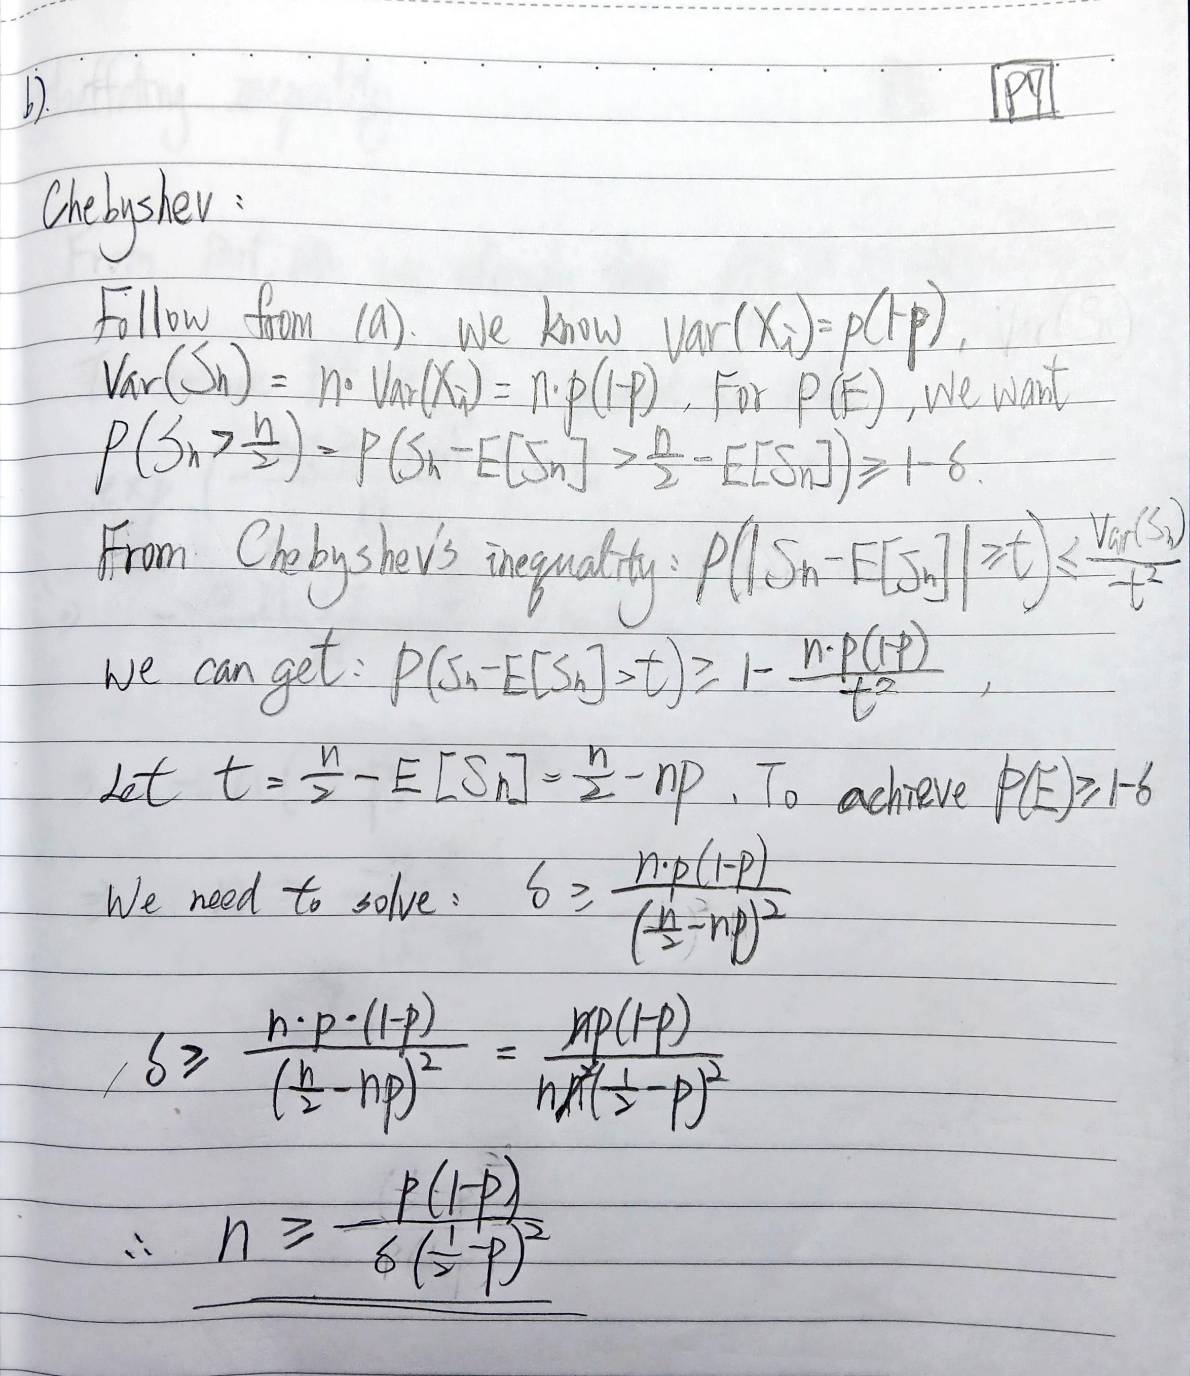 b).
P7
Chebyshev:
Follow from (a). We know var(Xi)=p(1-p),
Var(Sn) = n·Var(Xi) = n·p(1-p), For P(E), we want
P(Sn > n/2) = P(Sn - E[Sn] > n/2 - E[Sn]) ≥ 1-δ.
From Chebyshev's inequality: P(|Sn - E[Sn]| ≥ t) ≤ Var(Sn)/t²
we can get: P(Sn - E[Sn] > t) ≥ 1 - n·p(1-p)/t²,
Let t = n/2 - E[Sn] = n/2 - np. To achieve P(E) ≥ 1-δ
We need to solve: δ ≥ n·p(1-p)/(n/2 - np)²
δ ≥ n·p·(1-p)/(n/2 - np)² = np(1-p)/n n²(1/2 - p)²
∴ n ≥ p(1-p)/δ(1/2 - p)²